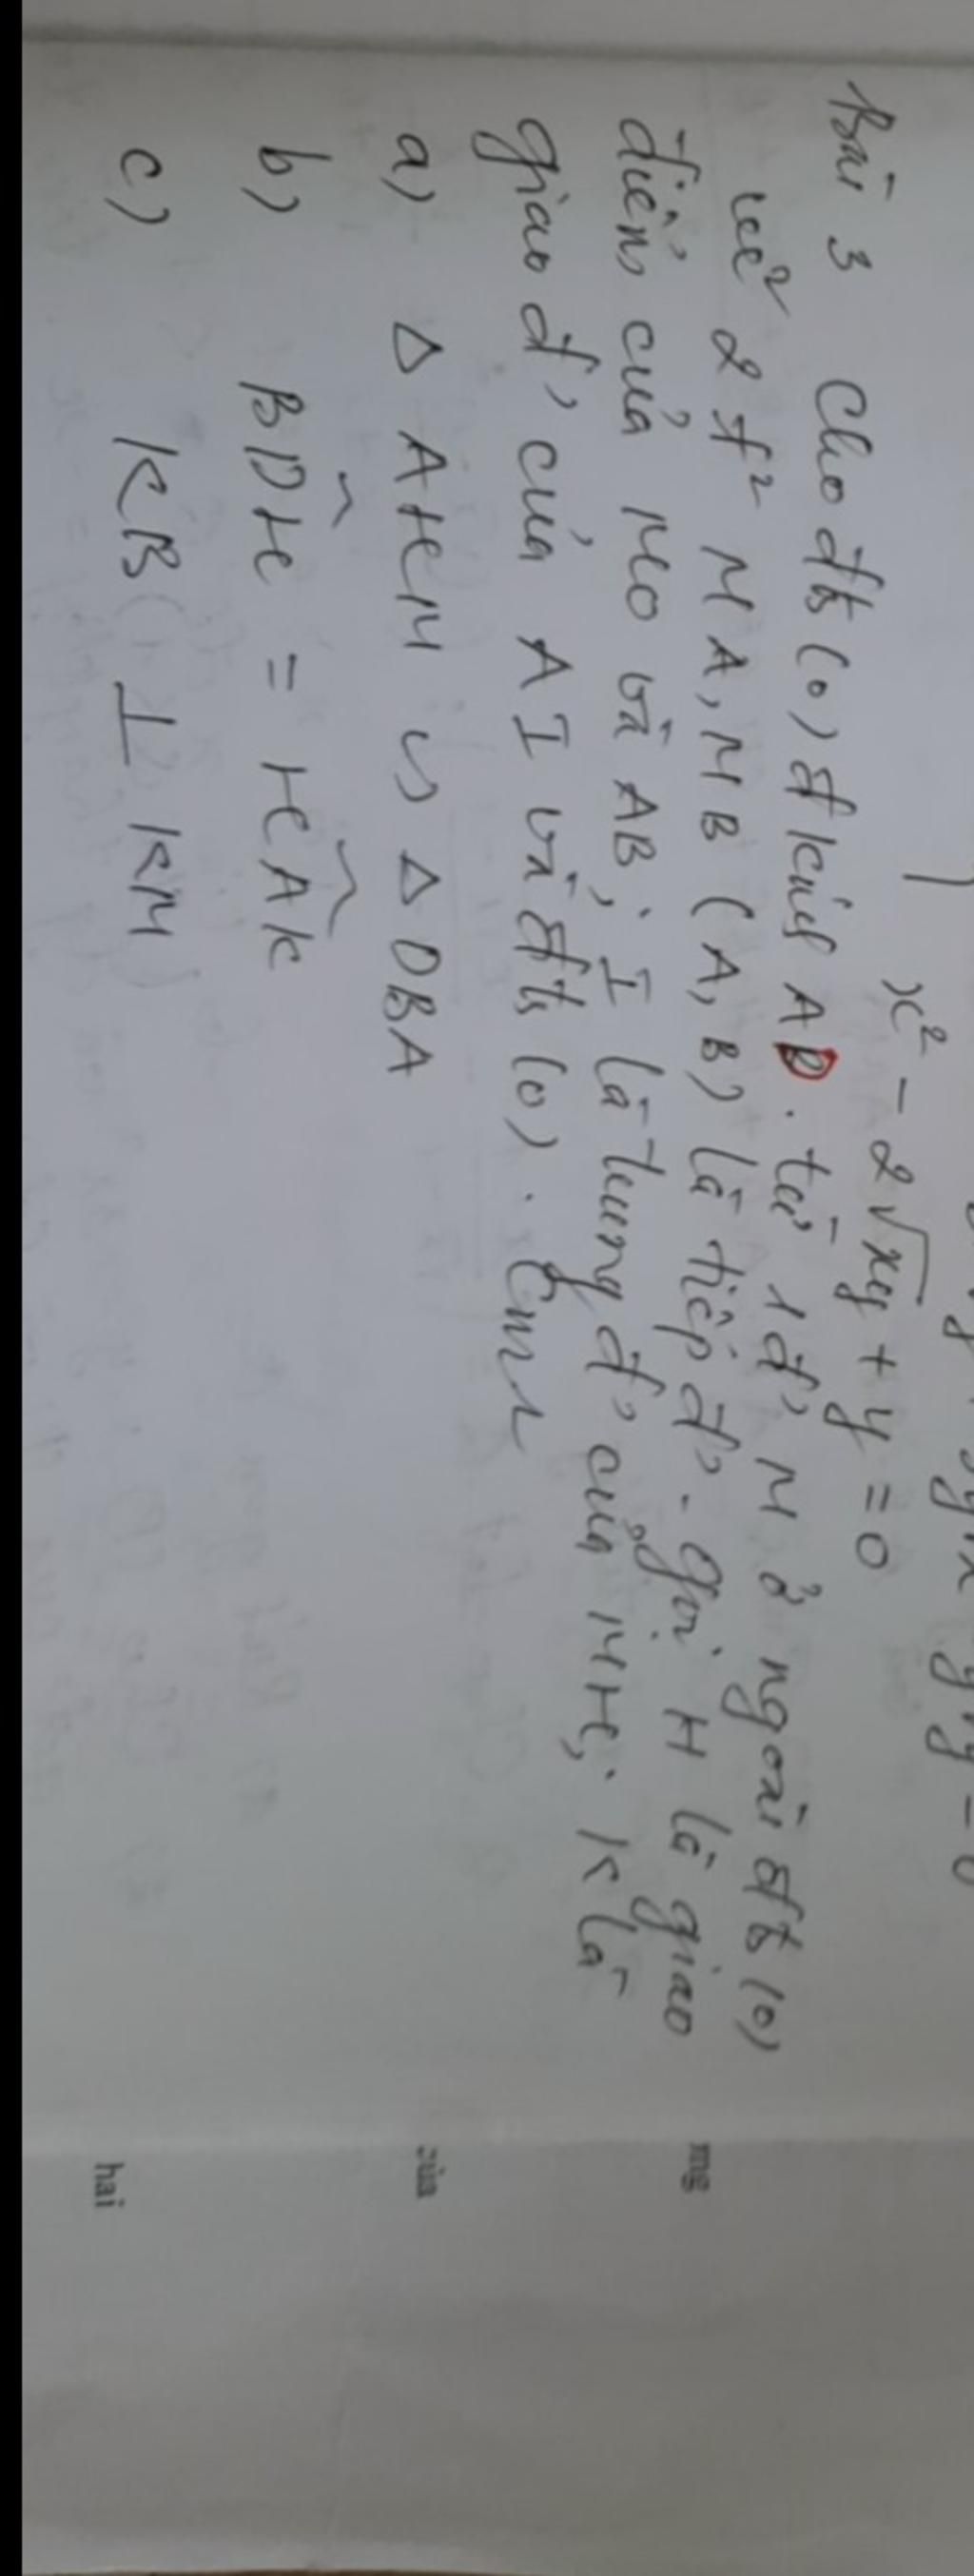 x² - 2√xy + y = 0
Bài 3 Cho đtr (O) đkính AD. từ 1đ' M ở ngoài đtr (O)
kẻ 2 t² MA, MB (A, B) là tiếp đ'. gọi H là giao
điểm của MO và AB; I là trung đ' của MH; K là
giao đ' của AI và đtr (O). Cmr
a) Δ AHM ∽ Δ DBA
b) BDH = HAK
c) KB ⊥ KM
mg
của
hai